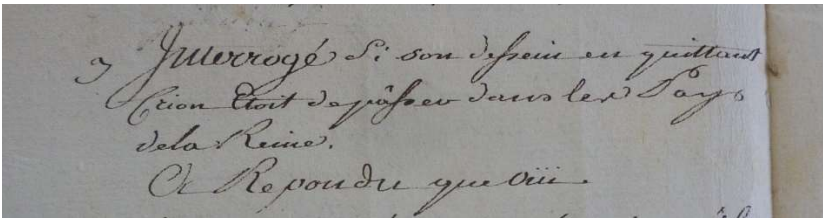 3 Interrogé Si son dessein en quittant
Crion Etoit de passer dans les Pays
de la Reine.
A Repondu que Oüi